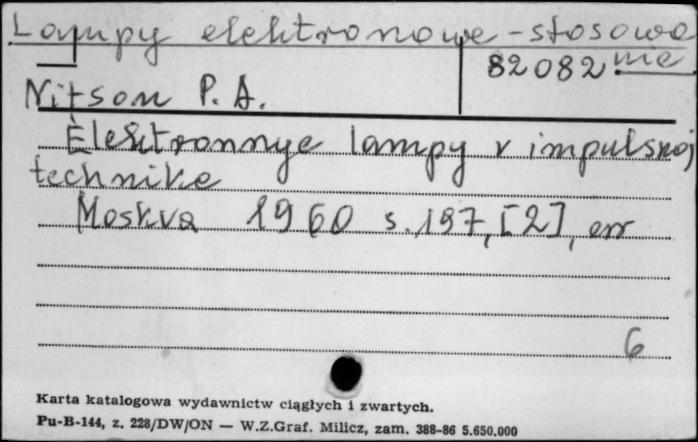 Lampy elektronowe - stosowa
nie
82082
Nitson P. A.
Èlektronnye lampy v impulsnoj
technike
Moskva 1960 s. 197, [2], err
6
Karta katalogowa wydawnictw ciągłych i zwartych.
Pu-B-144, z. 228/DW/ON — W.Z.Graf. Milicz, zam. 388-86 5.650.000